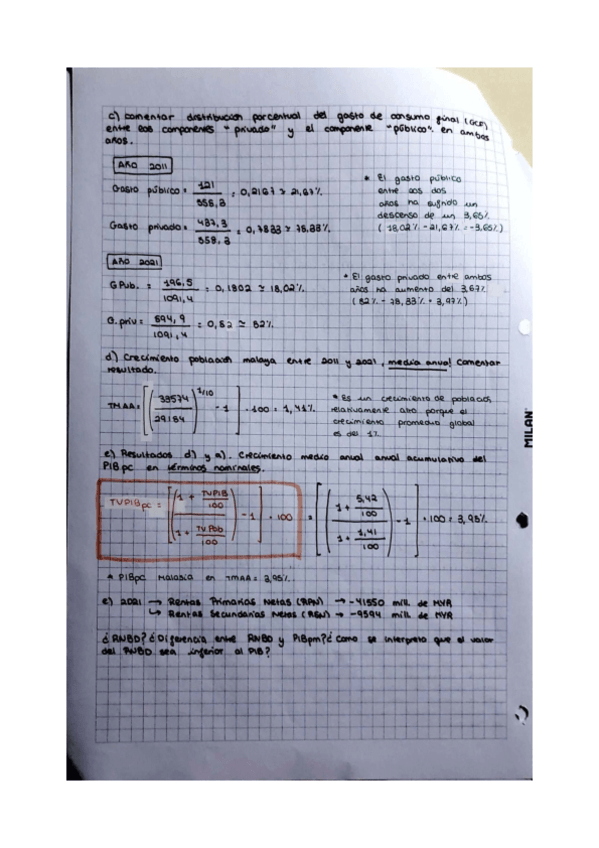 c) Comentar distribución porcentual del gasto de consumo final (GCF)
entre los componentes "privado" y el componente "público" en ambos
años.
AÑO 2011
Gasto público = 121 / 558,3 = 0,2167 ≃ 21,67%
Gasto privado = 437,3 / 558,3 = 0,7833 ≃ 78,33%
* El gasto público
entre los dos
años ha sufrido un
descenso de un 3,65%
(18,02% - 21,67% = -3,65%)
AÑO 2021
G Pub. = 196,5 / 1091,4 = 0,1802 ≃ 18,02%
G. priv = 894,9 / 1091,4 = 0,82 ≃ 82%
* El gasto privado entre ambos
años ha aumento del 3,67%
(82% - 78,33% = 3,97%)
d) Crecimiento población malaya entre 2011 y 2021, media anual. Comentar
resultado.
TMAA = [(33574 / 29184)^1/10 - 1] · 100 = 1,41%
* Es un crecimiento de población
relativamente alto porque el
crecimiento promedio global
es del 1%.
e) Resultados d) y a). Crecimiento medio anual anual acumulativo del
PIBpc en términos nominales.
TVPIBpc = [(1 + TVPIB/100 / 1 + TVPob/100) - 1] · 100 = [(1 + 5,42/100 / 1 + 1,41/100) - 1] · 100 = 3,95%
* PIBpc Malasia en TMAA = 3,95%.
e) 2021 → Rentas Primarias Netas (RPN) → -41550 mill. de MYR
↳ Rentas Secundarias Netas (RSN) → -9594 mill. de MYR
¿RNBD? ¿Diferencia entre RNBD y PIBpm? ¿Como se interpreta que el valor
del RNBD sea inferior al PIB?
MILAN